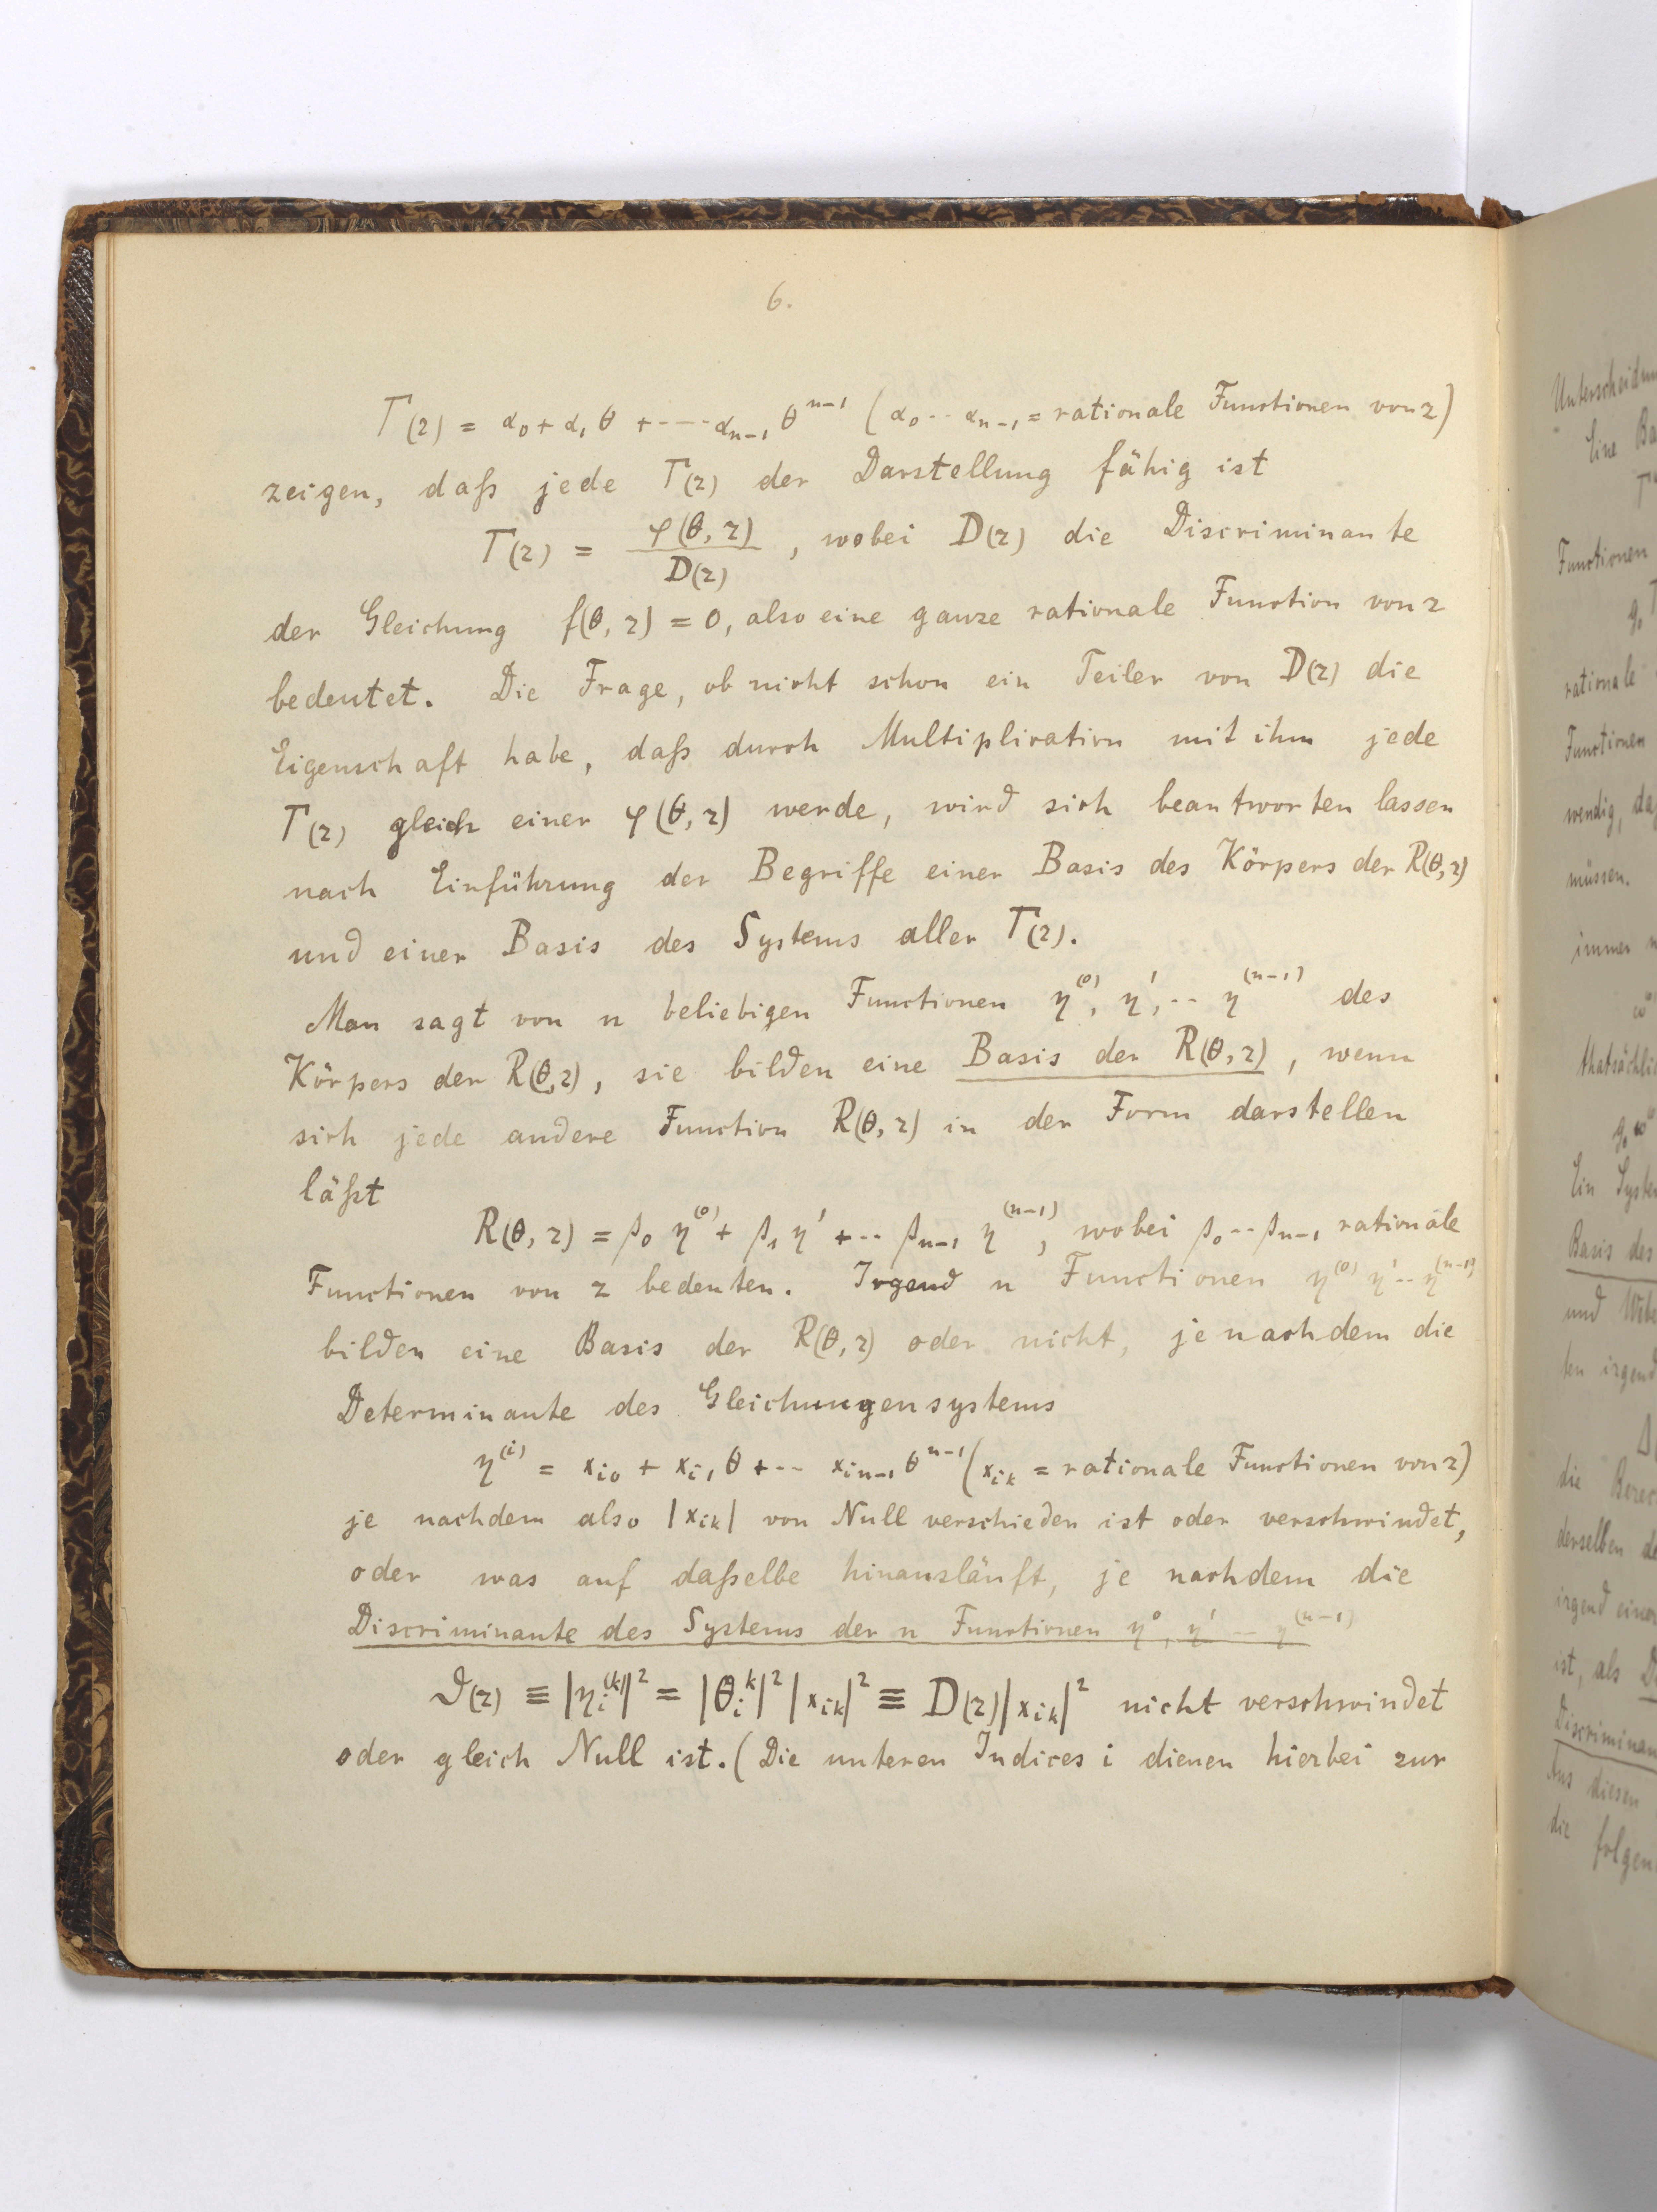 6.
T(z) = α₀ + α₁ θ + ---- αₙ₋₁ θⁿ⁻¹ (α₀ -- αₙ₋₁ = rationale Functionen von z)
zeigen, daß jede T(z) der Darstellung fähig ist
T(z) = φ(θ, z) / D(z), wobei D(z) die Discriminante
der Gleichung f(θ, z) = 0, also eine ganze rationale Function von z
bedeutet. Die Frage, ob nicht schon ein Teiler von D(z) die
Eigenschaft habe, daß durch Multiplication mit ihm jede
T(z) gleich einer φ(θ, z) werde, wird sich beantworten lassen
nach Einführung der Begriffe einer Basis des Körpers der R(θ, z)
und einer Basis des Systems aller T(z).
Man sagt von n beliebigen Functionen η⁽⁰⁾, η', -- η⁽ⁿ⁻¹⁾ des
Körpers der R(θ, z), sie bilden eine Basis der R(θ, z), wenn
sich jede andere Function R(θ, z) in der Form darstellen
läßt
R(θ, z) = β₀ η⁽⁰⁾ + β₁ η' + -- βₙ₋₁ η⁽ⁿ⁻¹⁾, wobei β₀ -- βₙ₋₁ rationale
Functionen von z bedeuten. Irgend n Functionen η⁽⁰⁾ η' -- η⁽ⁿ⁻¹⁾
bilden eine Basis der R(θ, z) oder nicht, je nachdem die
Determinante des Gleichungensystems
η⁽ⁱ⁾ = x_{i0} + x_{i1} θ + -- x_{in-1} θⁿ⁻¹ (x_{ik} = rationale Functionen von z)
je nachdem also |x_{ik}| von Null verschieden ist oder verschwindet,
oder was auf daßelbe hinausläuft, je nachdem die
Discriminante des Systems der n Functionen η⁰, η' -- η⁽ⁿ⁻¹⁾
ϑ(z) ≡ |η_i^{(k)}|² = |θ_i^k|² |x_{ik}|² ≡ D(z) |x_{ik}|² nicht verschwindet
oder gleich Null ist. (Die unteren Indices i dienen hierbei zur
Eine
Functionen
rationale
Functionen
wendig,
müssen.
immer
Ein
Basis des
und
die
derselben
ist, als
Aus diesen
die folgen